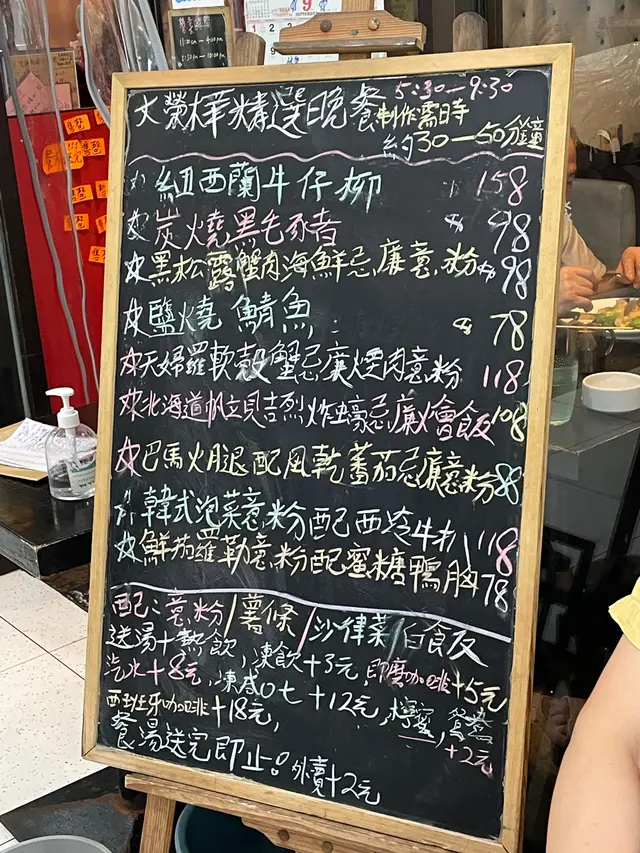 大榮樺精選晚餐 5:30-9:30
制作需時
約30-50分鐘
紐西蘭牛仔柳 158
炭燒黑毛豬 98
黑松露蟹肉海鮮忌廉意粉 98
鹽燒鯖魚 78
天婦羅軟殼蟹忌廉煙肉意粉 118
北海道帆立貝吉烈炸蠔忌廉燴飯 108
巴馬火腿配風乾蕃茄忌廉意粉 88
韓式泡菜意粉配西冷牛扒 118
鮮茄羅勒意粉配蜜糖鴨胸 78
配:意粉/薯條/沙律菜/白飯
送湯+熱飲,凍飲+3元,即磨咖啡+5元
汽水+8元,凍咸07+12元,檸蜜,
+2元
西班牙咖啡+18元,
餐湯送完即止。外賣+2元
9
SEPTEMBER